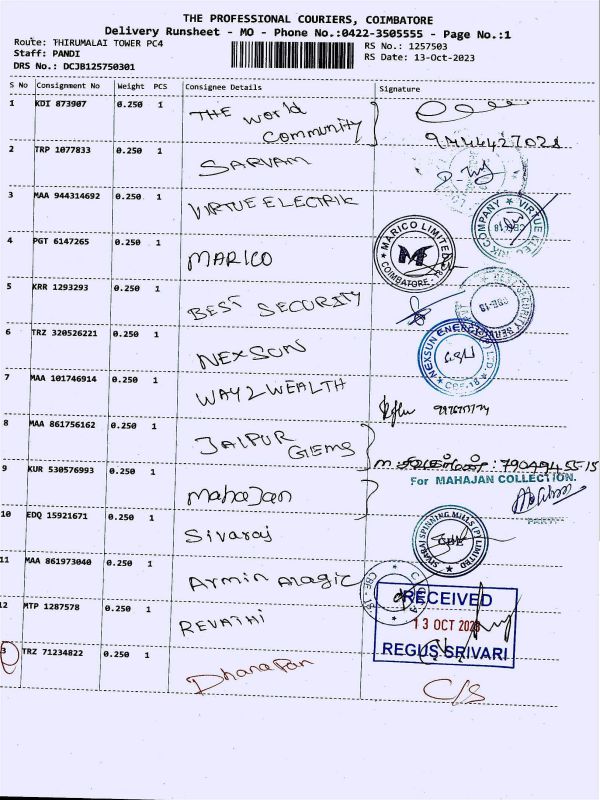 THE PROFESSIONAL COURIERS, COIMBATORE
Delivery Runsheet - MO - Phone No.:0422-3505555 - Page No.:1
Route: THIRUMALAI TOWER PC4
Staff: PANDI
DRS No.: DCJB125750301
RS No.: 1257503
RS Date: 13-Oct-2023
S No Consignment No Weight PCS Consignee Details Signature
1 KDI 873907 0.250 1 THE World Community
9444427021
2 TRP 1077833 0.250 1 SARVAM
3 MAA 944314692 0.250 1 VIRTUE ELECTRIK
4 PGT 6147265 0.250 1 MARICO
MARICO LIMITED
COIMBATORE
5 KRR 1293293 0.250 1 BEST SECURITY
CBE-18
6 TRZ 320526221 0.250 1 NEXSUN
NEXSUN ENERGY LTD.
CBE-18
7 MAA 101746914 0.250 1 WAY2WEALTH
8 MAA 861756162 0.250 1 JAIPUR GEMS
9 KUR 530576993 0.250 1 Mahajan
For MAHAJAN COLLECTION.
10 EDQ 15921671 0.250 1 Sivaraj
SIVARAJ SPINNING MILLS (P) LIMITED
11 MAA 861973040 0.250 1 Armin Magic
12 MTP 1287578 0.250 1 REVATHI
RECEIVED
13 OCT 2023
REGUS SRIVARI
3 TRZ 71234822 0.250 1
C/S